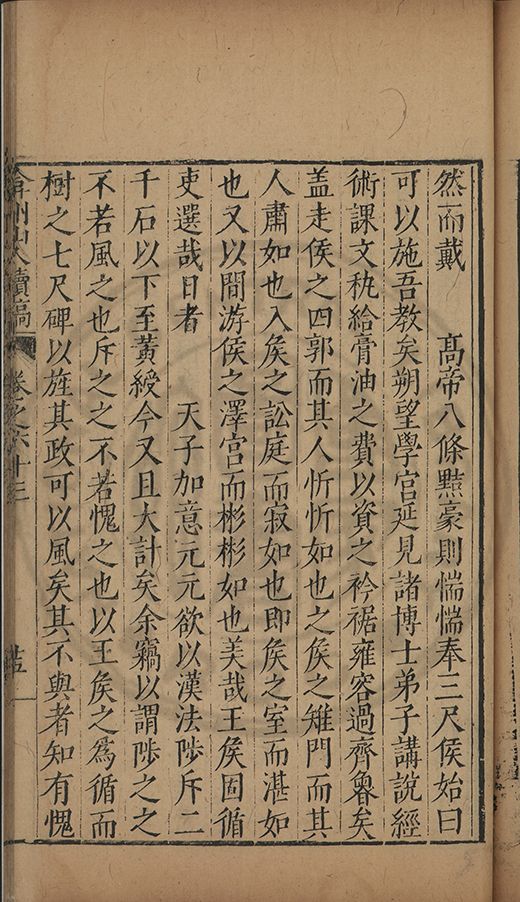 然而戴　　高帝八條黠豪則惴惴奉三尺侯始曰
可以施吾教矣朔望學官延見諸博士弟子講說經
術課文秇給膏油之費以資之衿裾雍容過齊魯矣
盖走侯之四郭而其人忻忻如也之侯之雉門而其
人肅如也入侯之訟庭而寂如也即侯之室而湛如
也又以間游侯之澤宮而彬彬如也美哉王侯固循
吏選哉日者　　天子加意元元欲以漢法陟斥二
千石以下至黃綬今又且大計矣余竊以謂陟之之
不若風之也斥之之不若愧之也以王侯之為循而
樹之七尺碑以旌其政可以風矣其不與者知有愧
弇州山人續稿　卷之六十三